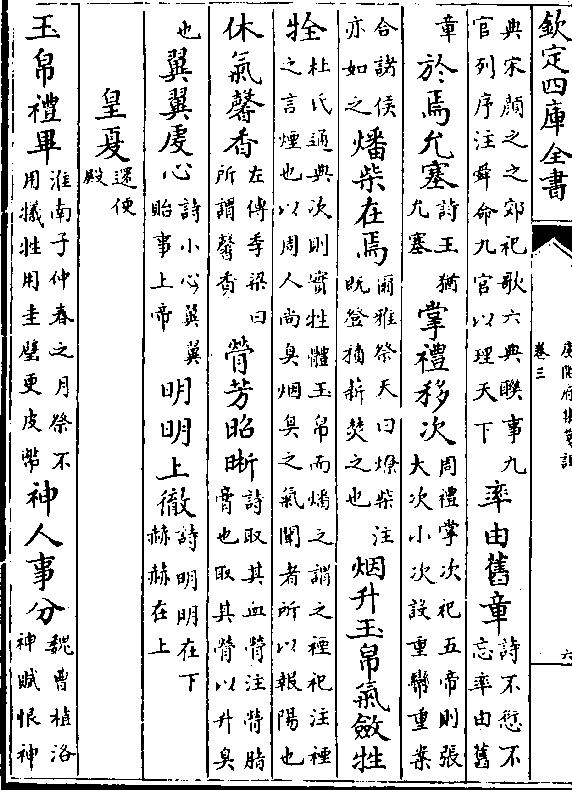 欽定四庫全書
庾開府集箋註
卷三
六
典宋顏之之郊祀歌六典聨事九
官列序注舜命九官以理天下
率由舊章
詩不愆不
忘率由舊
章
於焉允塞
詩王猶
允塞
掌禮移次
周禮掌次祀五帝則張
大次小次設重轡重案
合諸侯
亦如之
燔柴在焉
爾雅祭天曰燎柴注
既登摘薪焚之也
烟升玉帛氣斂牲
牷
杜氏通典次則實牲體玉帛而燔之謂之禋祀注禋
之言煙也以周人尚臭烟臭之氣聞者所以報陽也
休氣馨香
左傳季梁曰
所謂馨香
膋芳昭晰
詩取其血膋注膋脂
膏也取其膋以升臭
也
翼翼虔心
詩小心翼翼
昭事上帝
明明上徹
詩明明在下
赫赫在上
皇夏
還便
殿
玉帛禮畢
淮南子仲春之月祭不
用犧牲用圭璧更皮幣
神人事分
魏曹植洛
神賦恨神